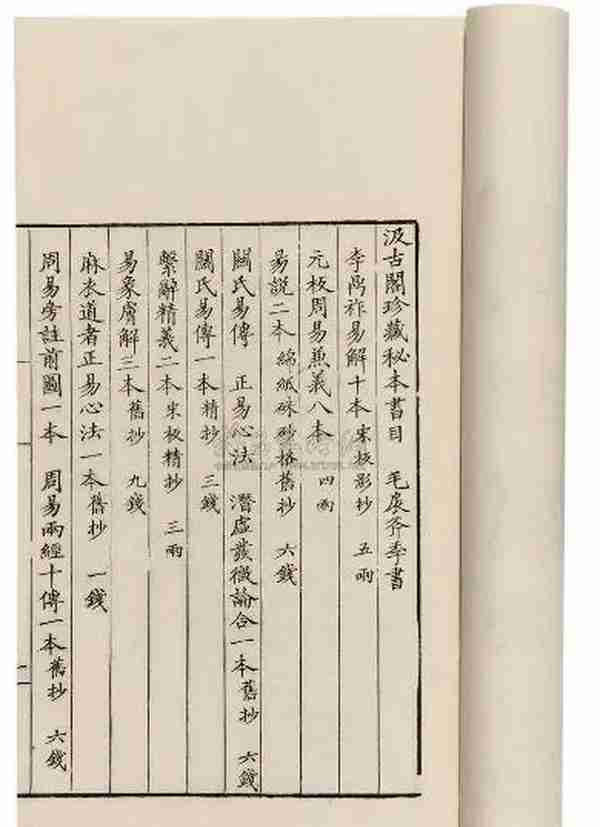 汲古閣珍藏秘本書目 毛扆斧季書
李鼎祚易解十本宋板影抄 五兩
元板周易兼義八本 四兩
易說二本 綿紙硃砂格舊抄 六錢
關氏易傳 正易心法 潛虛發微論合一本舊抄 六錢
關氏易傳一本精抄 三錢
繫辭精義二本宋板精抄 三兩
易象膚解三本舊抄 九錢
麻衣道者正易心法一本舊抄 一錢
周易旁註前圖一本 周易兩經十傳一本舊抄 六錢